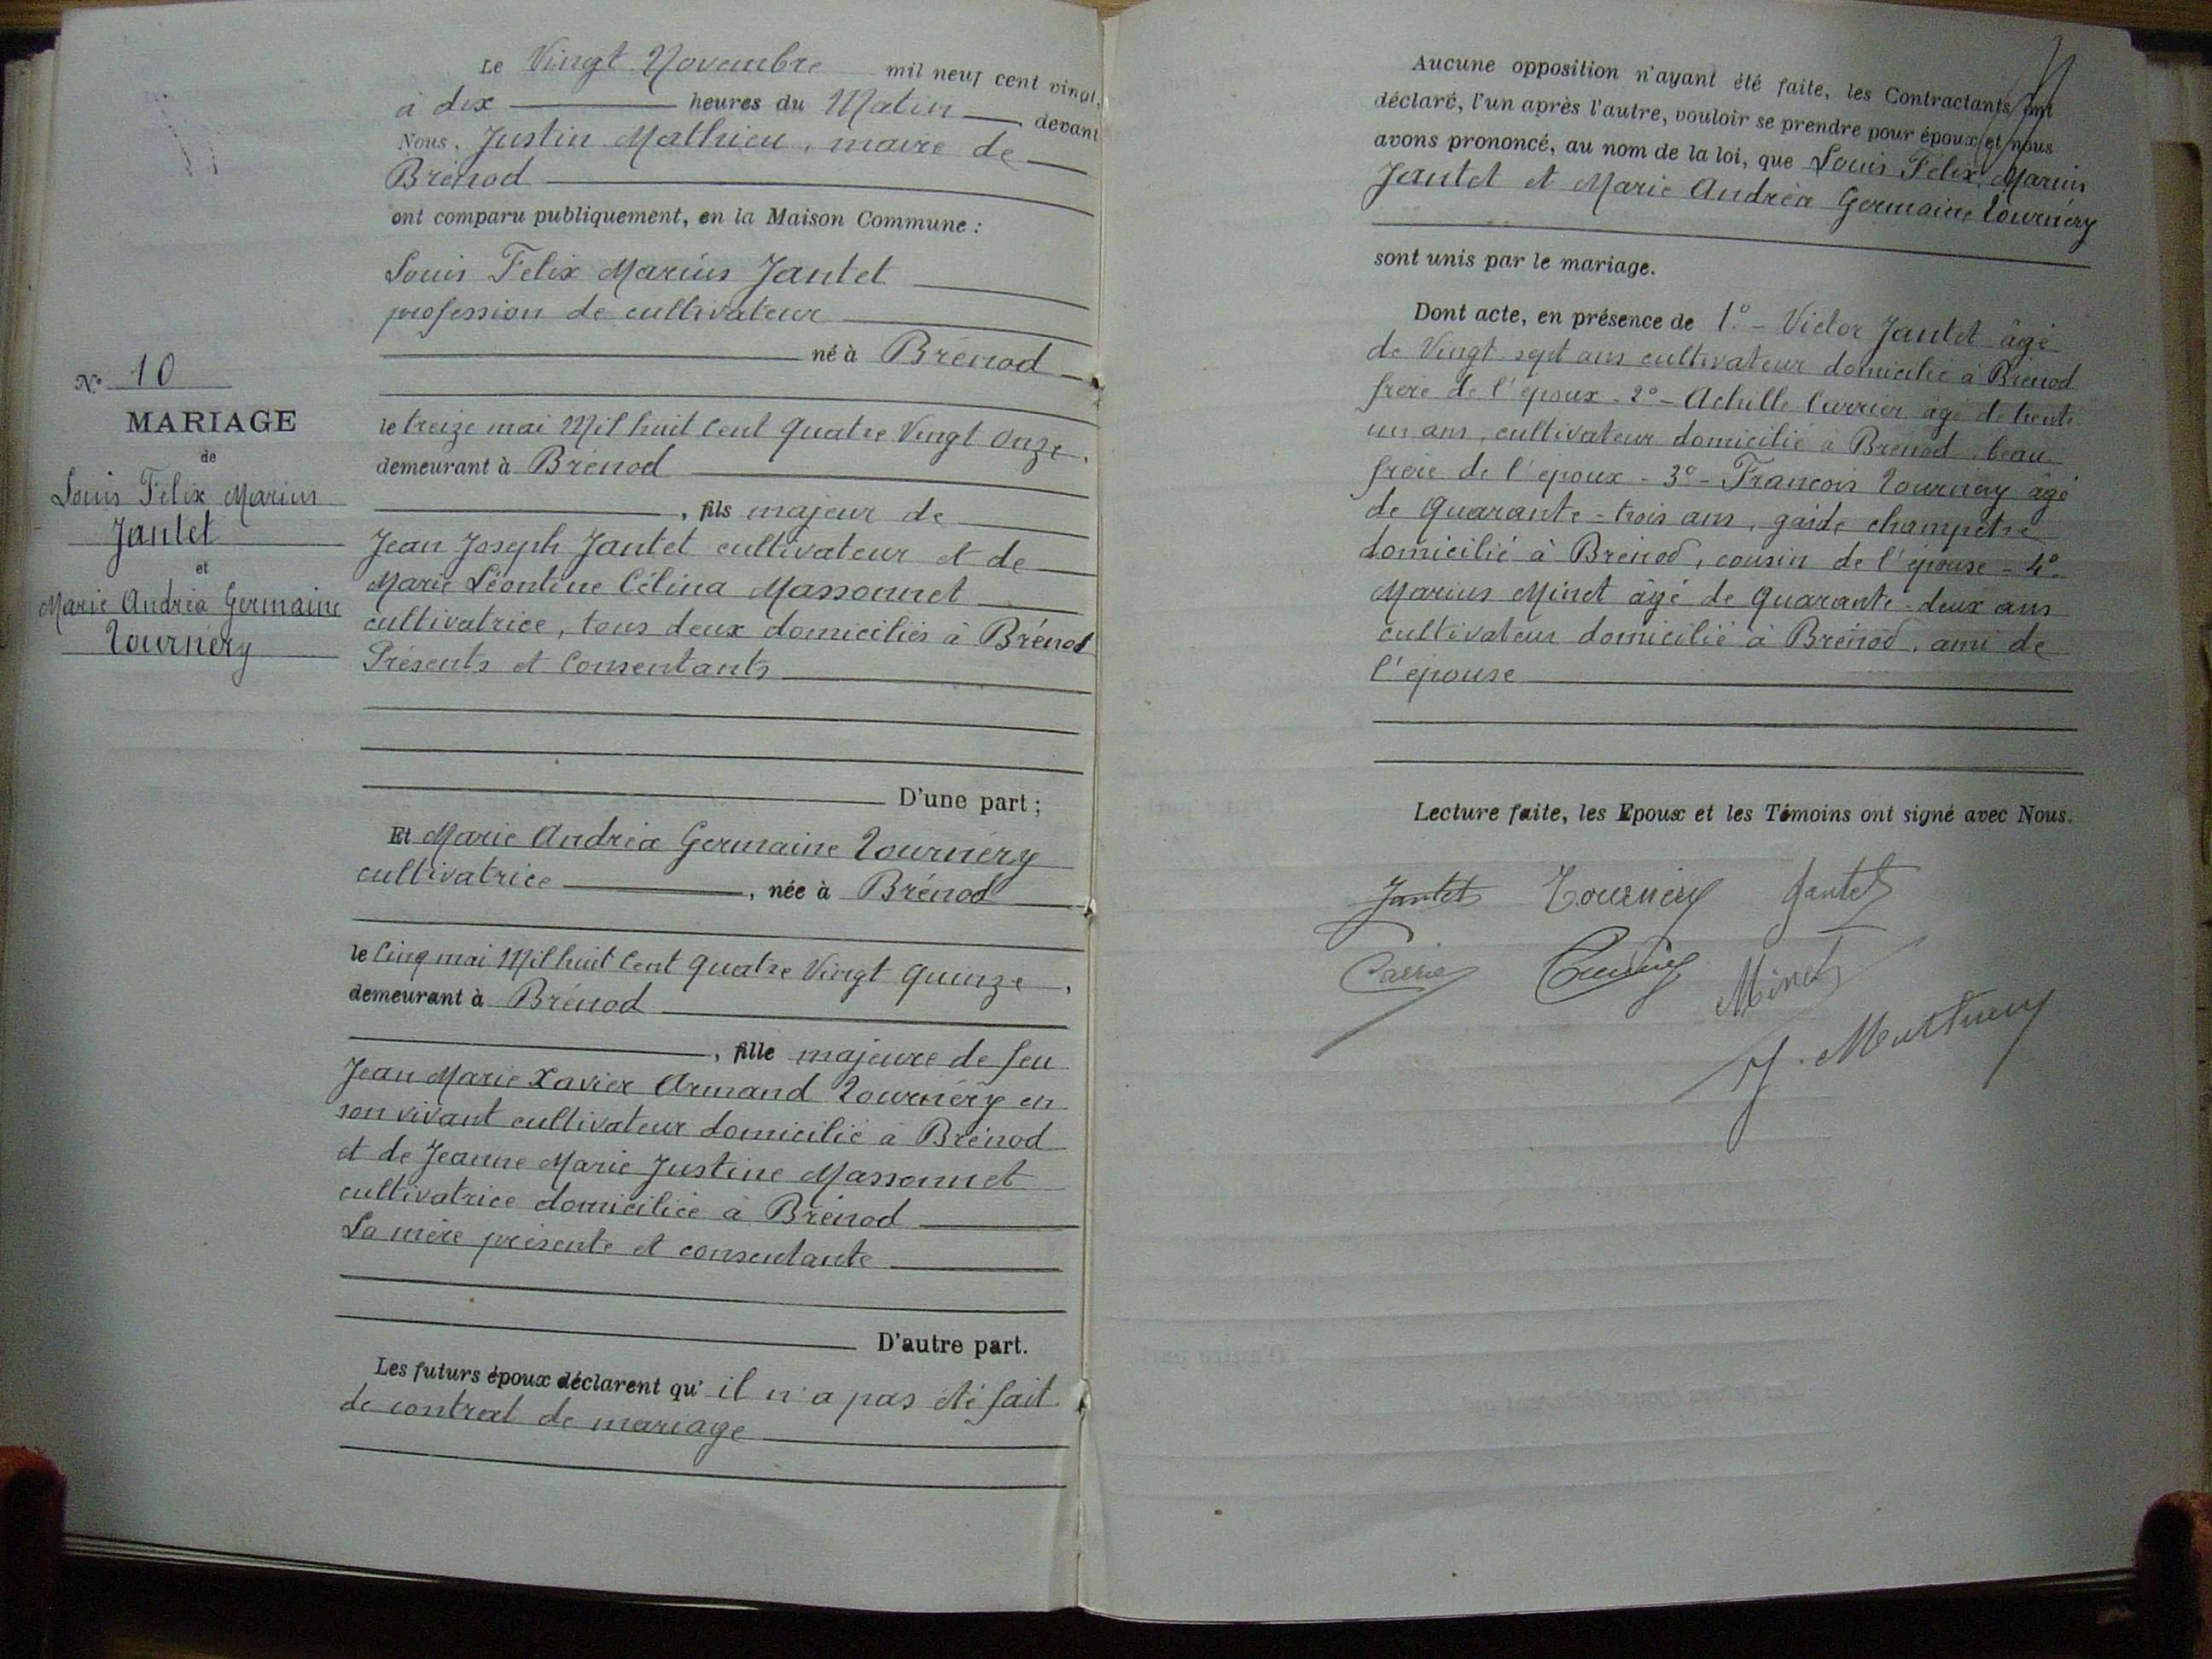 Le Vingt Novembre mil neuf cent vingt,
à dix heures du Matin, devant
Nous, Justin Mathieu, maire de
Brénod
ont comparu publiquement, en la Maison Commune :
Louis Felix Marius Jantet
profession de cultivateur
né à Brénod
le treize mai Mil huit Cent Quatre Vingt Onze,
demeurant à Brénod
, fils majeur de
Jean Joseph Jantet cultivateur et de
Marie Léontine Célina Massonnet
cultivatrice, tous deux domiciliés à Brénod
Présents et Consentants
D'une part ;
Et Marie Andréa Germaine Tournéry
cultivatrice, née à Brénod
le Cinq mai Mil huit Cent Quatre Vingt Quinze,
demeurant à Brénod
, fille majeure de feu
Jean Marie Xavier Armand Tournéry en
son vivant cultivateur domicilié à Brénod
et de Jeanne Marie Justine Massonnet
cultivatrice domiciliée à Brénod
La mère présente et consentante
D'autre part.
Les futurs époux déclarent qu' il n'a pas été fait
de contrat de mariage
N° 10
MARIAGE
de
Louis Félix Marius
Jantet
et
Marie Andréa Germaine
Tournéry
Aucune opposition n'ayant été faite, les Contractants ont
déclaré, l'un après l'autre, vouloir se prendre pour époux et nous
avons prononcé, au nom de la loi, que Louis Félix Marius
Jantet et Marie Andréa Germaine Tournéry
sont unis par le mariage.
Dont acte, en présence de 1° - Victor Jantet âgé
de Vingt sept ans cultivateur domicilié à Brénod
frère de l'époux - 2° - Achille Carrier âgé de trente
un ans, cultivateur domicilié à Brénod, beau
frère de l'époux - 3° - François Tournéry âgé
de Quarante-trois ans, garde champetre
domicilié à Brénod, cousin de l'épouse - 4°
Marius Minet âgé de Quarante-deux ans
cultivateur domicilié à Brénod, ami de
l'épouse
Lecture faite, les Epoux et les Témoins ont signé avec Nous.
Jantet Tournéry Jantet
Carrier Minet
J. Mathieu